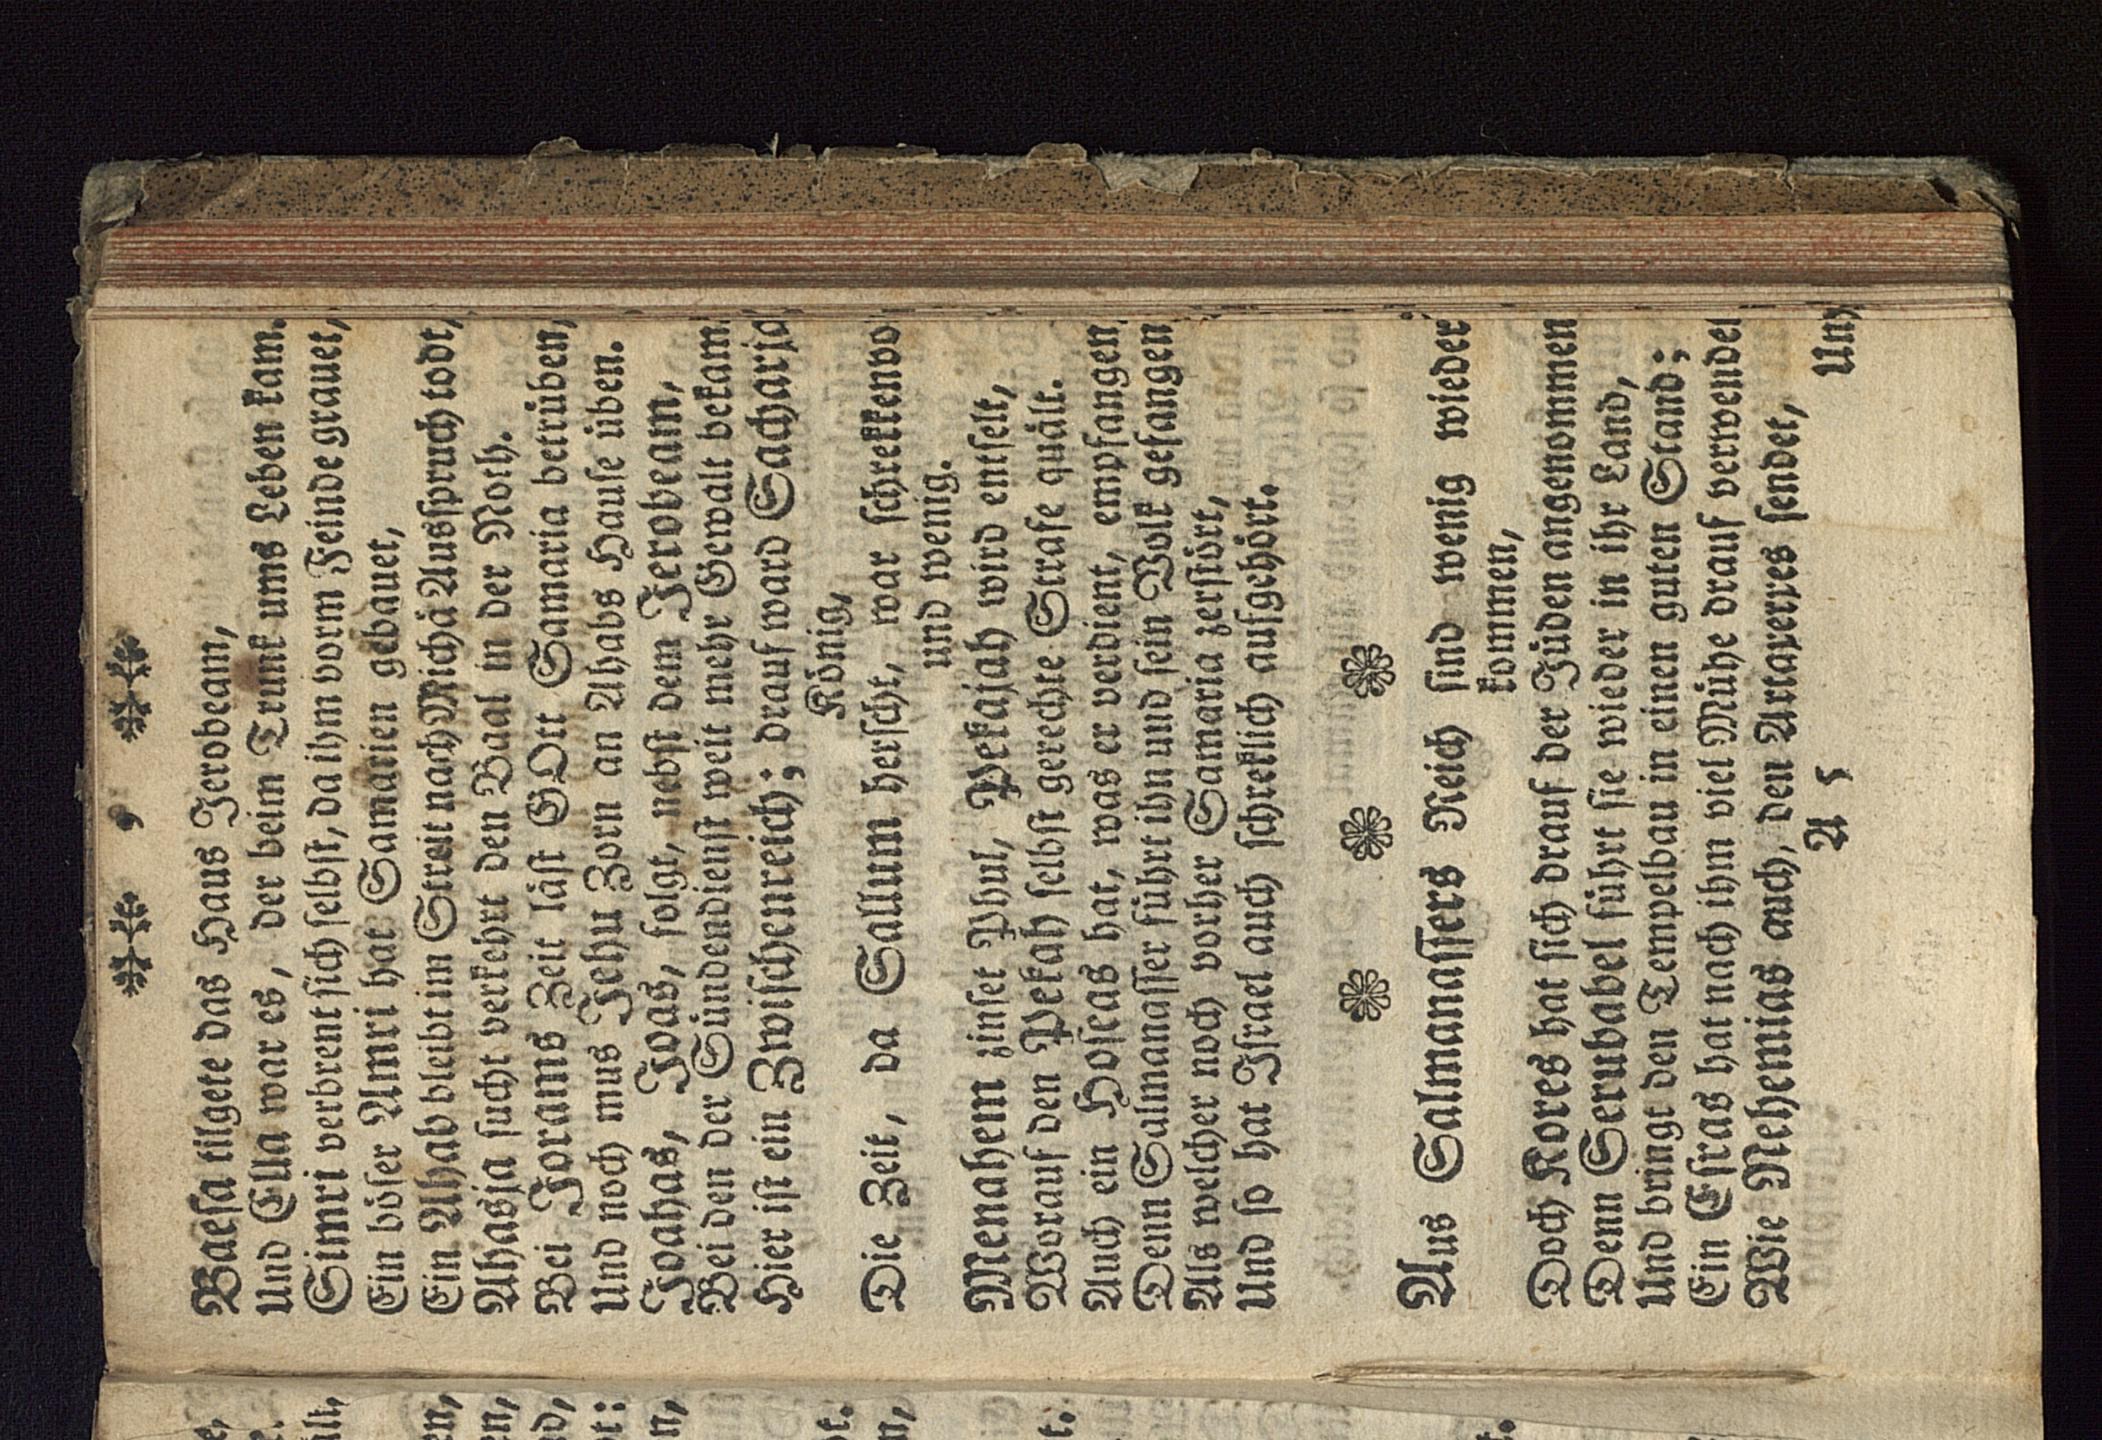 9
Baesa tilgete das Haus Jerobeam,
Und Ella war es, der beim Trunk ums Leben kam.
Simri verbrent sich selbst, da ihm vorm Feinde grauet,
Ein böser Amri hat Samarien gebauet,
Ein Ahab bleibt im Streit nach Michä Ausspruch todt,
Ahasja sucht verkehrt den Baal in der Noth.
Bei Jorams Zeit läst GOtt Samaria betrüben,
Und noch mus Jehu Zorn an Ahabs Hause üben.
Joahas, Joas, folgt, nebst dem Jerobeam,
Bei den der Sündendienst weit mehr Gewalt bekam
Hier ist ein Zwischenreich; drauf ward Sacharja
König,
Die Zeit, da Sallum herscht, war schrekkenvo
und wenig.
Menahem zinset Phul, Pekajah wird entselt,
Worauf den Pekah selbst gerechte Strafe quält.
Auch ein Hoseas hat, was er verdient, empfangen,
Denn Salmanasser führt ihn und sein Volk gefangen
Als welcher noch vorher Samaria zerstört,
Und so hat Israel auch schreklich aufgehört.
Aus Salmanassers Reich sind wenig wieder
kommen,
Doch Kores hat sich drauf der Jüden angenommen
Denn Serubabel führt sie wieder in ihr Land,
Und bringt den Tempelbau in einen guten Stand;
Ein Esras hat nach ihm viel Mühe drauf verwendet
Wie Nehemias auch, den Artaxerxes sendet,
A 5 Und